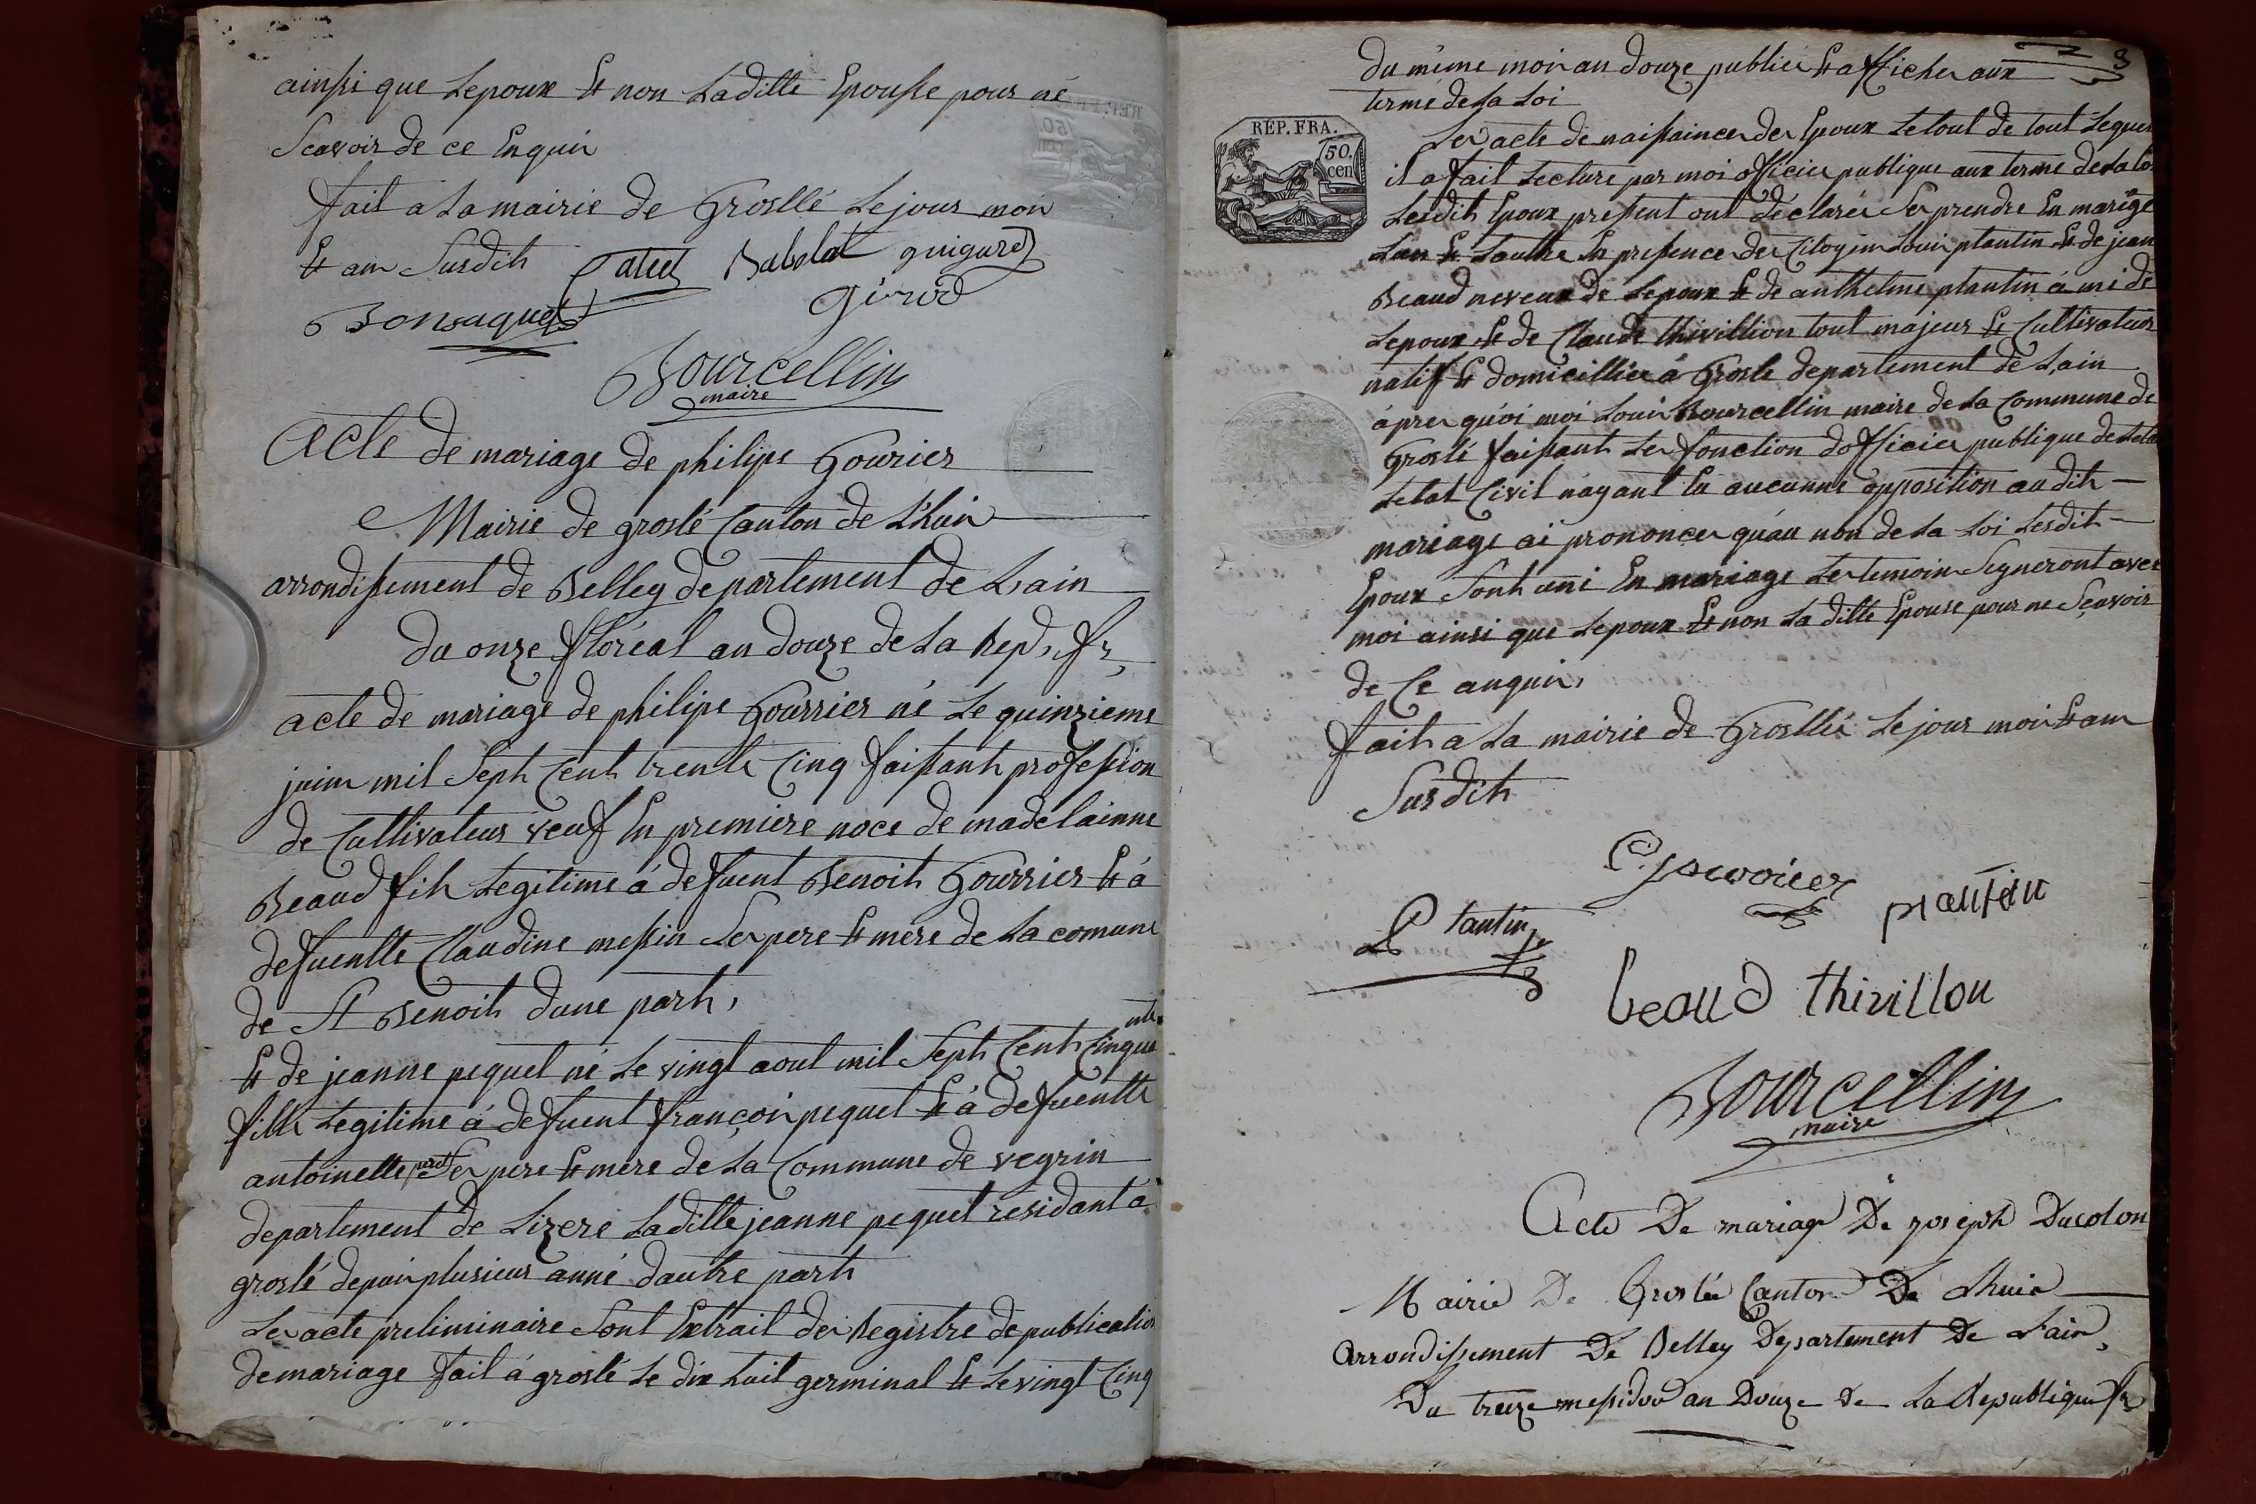 ainssi que Lepoux Et non Laditte Epousse pour né
Scavoir de ce Enquir
fait a La mairie de Grosllé Le jour mon
Et an Susdith Catet Babolat guigard
Bonsaquet Girod
Bourcellin
maire
Acte de mariage de philipe Gourier
Mairie de groslé Canton de Lhuir
arrondissement de Belley departement de Lain
Du onze floréal an douze de La Rep, fr,
acte de mariage de philipe Gourrier né Le quinzieme
juin mil Septh Centh trente Cinq faissanth profession
de Cultivateur veuf En premiere noce de madelainne
Beaud filh Legitime á defuent Benoith Gourrier Et á
defuentte Claudine messin Ser pere Et mere de La comune
de St Benoith dune parth,
Et de jeanne pequet né Le vingt aout mil Septh Centh Cinquante
fille Legitime á defuent françoir pequet Et á defuentte
antoinette Ser pere Et mere de La Commune de veyrin
departement de Lizere Laditte jeanne pequet residant á
groslé depuir plusieur anné dautre parth
Ler acte preliminaire Sont Extrait der Registre de publication
de mariage fait á groslé Le dix huit germinal Et Le vingt Cinq
3
du même moir an douze publier Et afficher aux
terme de La Loi
REP. FRA.
50.
cen
Ler acte de naissaincer der Epoux Le tout de tout Lequer
il a fait Lecture par moi officier publique aux terme de La Loi
Lesdith Epoux pressent ont déclarér Se prendre En mariage
Lun Et Lautre En pressence der Citoyen Louir plantin Et de jean
Beaud neveux de Lepoux Et de anthelme plantin á mi de
Lepoux Et de Claude thivillion tout majeur Et Cultivateur
natif Et domicillier á Grosle departement de Lain
áprer quoi moi Louir Bourcellin maire de La Commune de
Groslé faissanth Ler fonction dofficier publique de
Letat Civil náyant Eu aucunne opposition au dith
mariage ai prononcer quáu non de La Loi Lesdith
Epoux Sonth uni En mariage Ler temoin Segneront avec
moi ainsi que Lepoux Et non La ditte Epouse pour ne Sçavoir
de Ce anquir,
faith a La mairie de Grosllé Le jour moir Et an
Susdith
plantin
Plantin
beaud thivillon
Bourcellin
maire
Acte De mariage De joseph Ducolon
Mairie De Groslée Canton De Lhuir
Arrondissement De Belley Departement De Lain,
Du treize messidor an Douze De La Republique fr